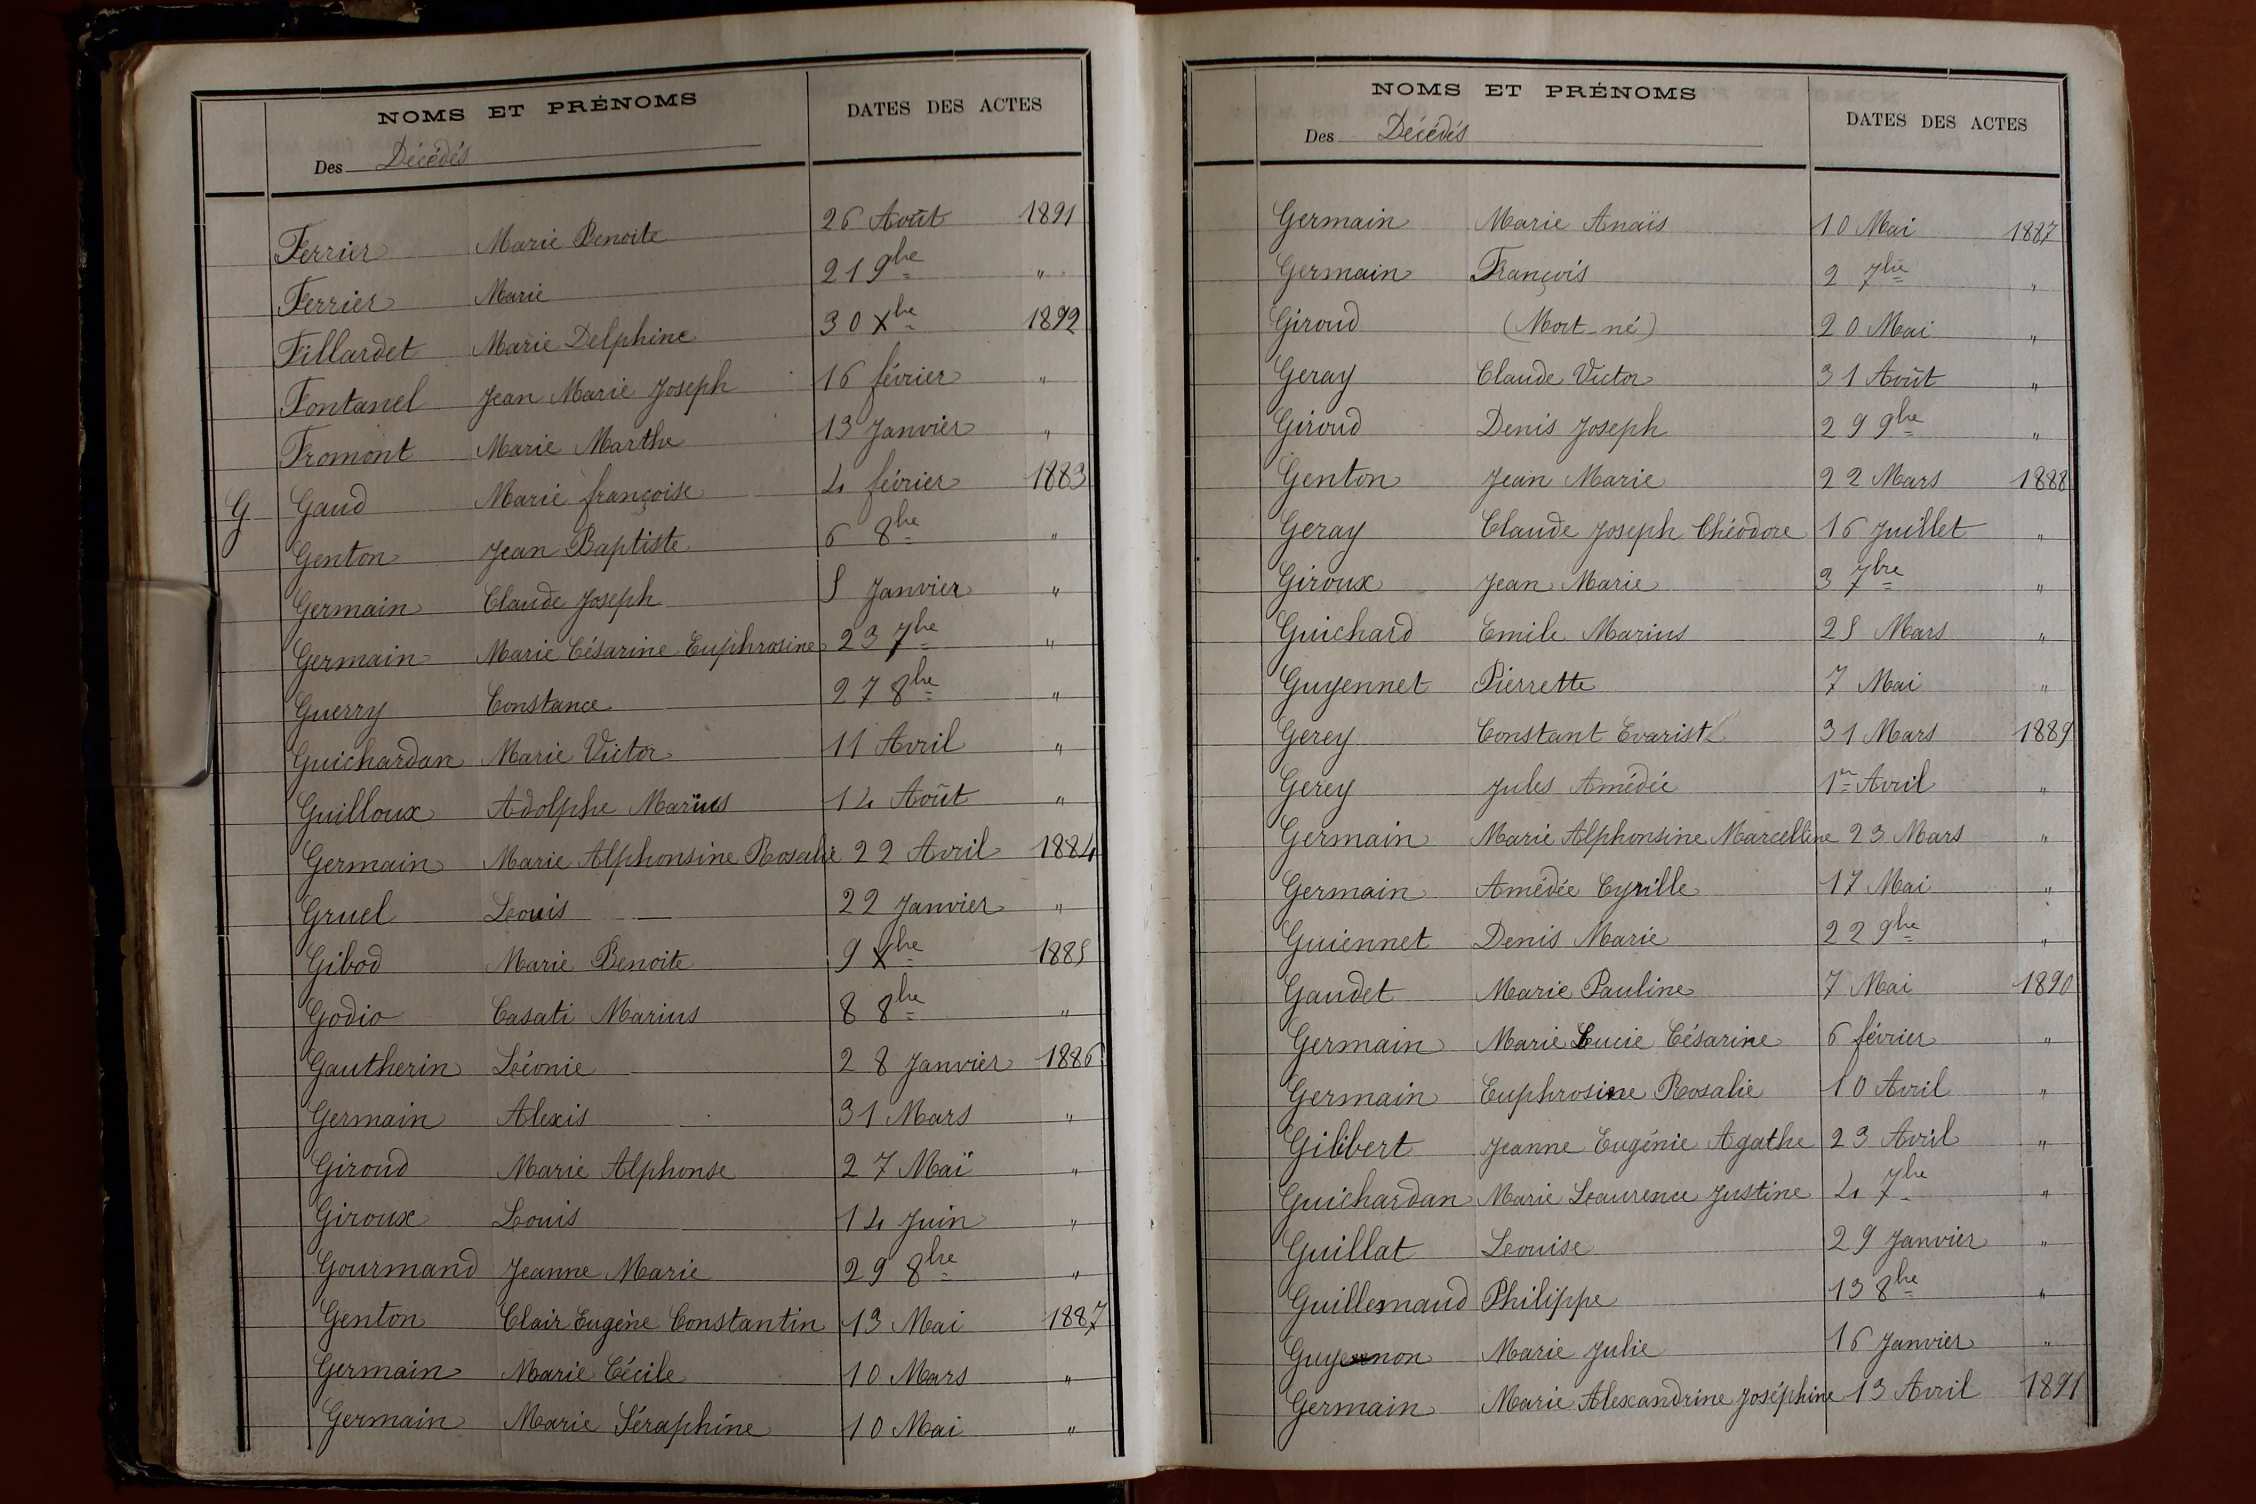 NOMS ET PRÉNOMS DATES DES ACTES
Des Décédés
Ferrier Marie Benoite 26 Août 1891
Ferrier Marie 21 9bre "
Fillardet Marie Delphine 30 Xbre 1892
Fontanel Jean Marie Joseph 16 février "
Fromont Marie Marthe 13 Janvier "
G Gaud Marie françoise 4 février 1883
Genton Jean Baptiste 6 8bre "
Germain Claude Joseph 5 Janvier "
Germain Marie Césarine Euphrosine 23 7bre "
Guerry Constance 27 8bre "
Guichardan Marie Victor 11 Avril "
Guilloux Adolphe Marius 14 Août "
Germain Marie Alphonsine Rosalie 22 Avril 1884
Gruel Louis 22 Janvier "
Gibod Marie Benoite 9 Xbre 1885
Godio Casati Marius 8 8bre "
Gautherin Léonie 28 Janvier 1886
Germain Alexis 31 Mars "
Giroud Marie Alphonse 27 Mai "
Giroux Louis 14 Juin "
Gourmand Jeanne Marie 29 8bre "
Genton Clair Eugène Constantin 13 Mai 1887
Germain Marie Cécile 10 Mars "
Germain Marie Séraphine 10 Mai "
NOMS ET PRÉNOMS DATES DES ACTES
Des Décédés
Germain Marie Anaïs 10 Mai 1887
Germain François 2 7bre "
Giroud (Mort-né) 20 Mai "
Geray Claude Victor 31 Août "
Giroud Denis Joseph 29 9bre "
Genton Jean Marie 22 Mars 1888
Geray Claude Joseph Théodore 16 Juillet "
Giroux Jean Marie 3 7bre "
Guichard Emile Marius 25 Mars "
Guyennet Pierrette 7 Mai "
Gerey Constant Evariste 31 Mars 1889
Gerey Jules Amédée 1er Avril "
Germain Marie Alphonsine Marcelline 23 Mars "
Germain Amédée Cyrille 17 Mai "
Guiennet Denis Marie 22 9bre "
Gaudet Marie Pauline 7 Mai 1890
Germain Marie Lucie Césarine 6 février "
Germain Euphrosine Rosalie 10 Avril "
Gilibert Jeanne Eugénie Agathe 23 Avril "
Guichardan Marie Laurence Justine 4 7bre "
Guillat Louise 29 Janvier "
Guillemaud Philippe 13 8bre "
Marie Julie 16 Janvier "
Germain Marie Alexandrine Joséphine 13 Avril 1891